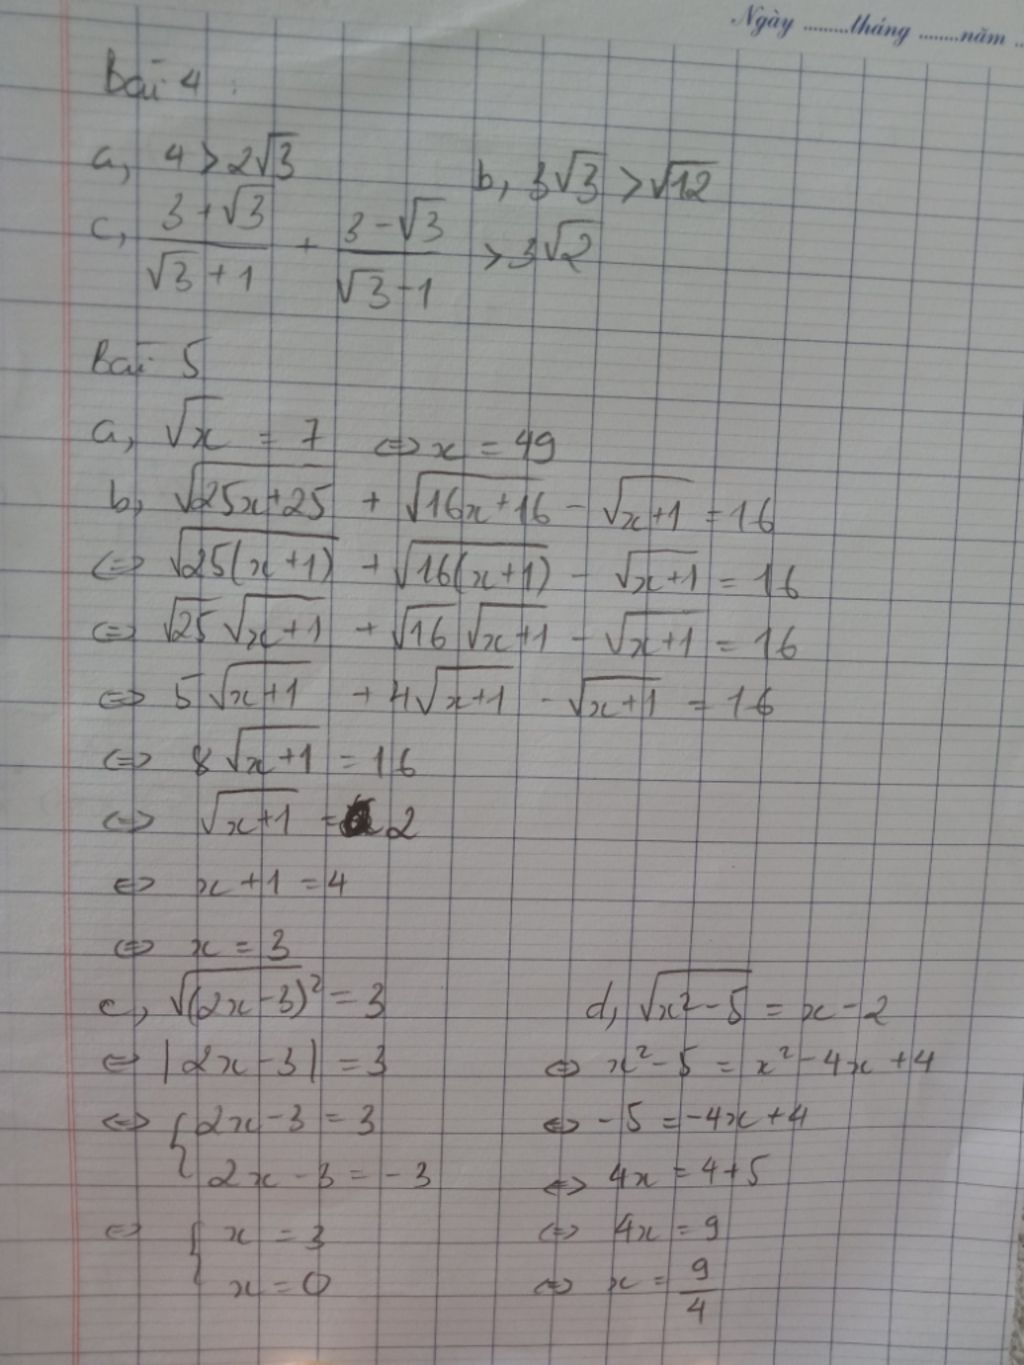 Ngày ........tháng ........năm ..
Bài 4 :
a, 4 > 2√3
b, 3√3 > √12
c, (3 + √3)/(√3 + 1) + (3 - √3)/(√3 - 1) > 3√2
Bài 5
a, √x = 7 ⇔ x = 49
b, √(25x+25) + √(16x+16) - √(x+1) = 16
⇔ √(25(x+1)) + √(16(x+1)) - √(x+1) = 16
⇔ √25 √(x+1) + √16 √(x+1) - √(x+1) = 16
⇔ 5√(x+1) + 4√(x+1) - √(x+1) = 16
⇔ 8√(x+1) = 16
⇔ √(x+1) = 2
⇔ x+1 = 4
⇔ x = 3
c, √(2x-3)² = 3
⇔ |2x-3| = 3
⇔ { 2x-3 = 3
2x-3 = -3
⇔ { x = 3
x = 0
d, √(x²-5) = x-2
⇔ x²-5 = x²-4x+4
⇔ -5 = -4x+4
⇔ 4x = 4+5
⇔ 4x = 9
⇔ x = 9/4